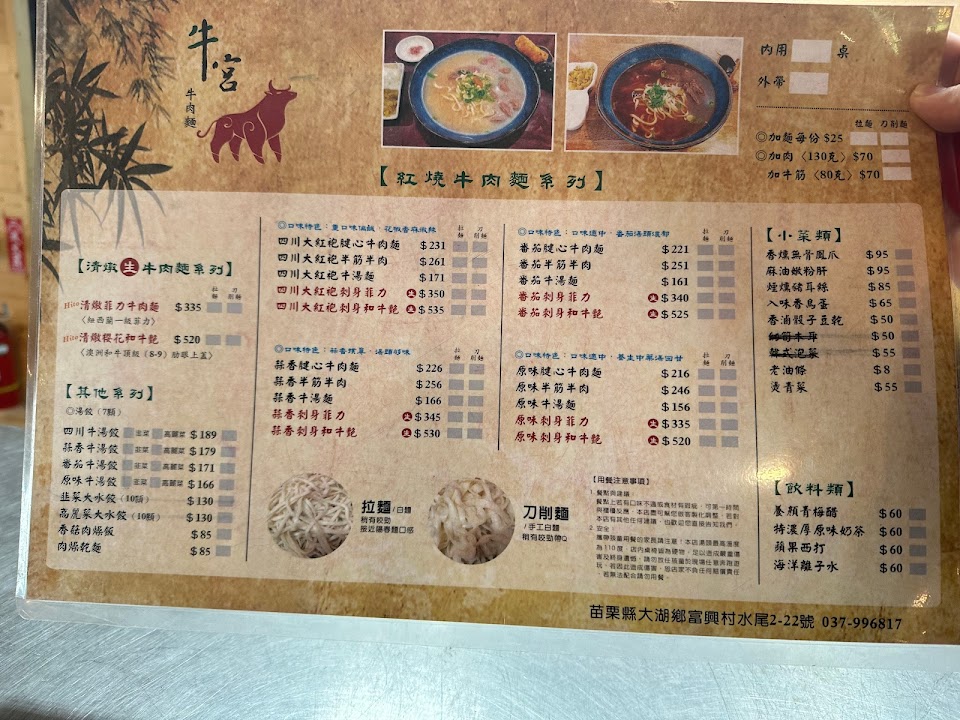 牛宮
牛肉麵
內用 桌
外帶
拉麵 刀削麵
◎加麵每份 $25
◎加肉〈130克〉$70
加牛筋〈80克〉$70
【紅燒牛肉麵系列】
【清燉生牛肉麵系列】
拉麵 刀削麵
Hito清燉菲力牛肉麵 $335
〈紐西蘭一級菲力〉
Hito清燉櫻花和牛麵 $520
〈澳洲和牛頂級(8-9)肋眼上蓋〉
【其他系列】
◎湯餃(7顆)
四川牛湯餃 韭菜 高麗菜 $189
蒜香牛湯餃 韭菜 高麗菜 $179
番茄牛湯餃 韭菜 高麗菜 $171
原味牛湯餃 韭菜 高麗菜 $166
韭菜大水餃(10顆) $130
高麗菜大水餃(10顆) $130
香菇肉燥飯 $85
肉燥乾麵 $85
◎口味特色：重口味偏鹹、花椒香麻微辣
拉麵 刀削麵
四川大紅袍腱心牛肉麵 $231
四川大紅袍半筋半肉 $261
四川大紅袍牛湯麵 $171
四川大紅袍刺身菲力 生 $350
四川大紅袍刺身和牛麵 生 $535
◎口味特色：蒜香撲鼻、湯頭夠味
拉麵 刀削麵
蒜香腱心牛肉麵 $226
蒜香半筋半肉 $256
蒜香牛湯麵 $166
蒜香刺身菲力 生 $345
蒜香刺身和牛麵 生 $530
◎口味特色：口味適中、番茄湯頭濃郁
拉麵 刀削麵
番茄腱心牛肉麵 $221
番茄半筋半肉 $251
番茄牛湯麵 $161
番茄刺身菲力 生 $340
番茄刺身和牛麵 生 $525
◎口味特色：口味適中、養生中藥湯回甘
拉麵 刀削麵
原味腱心牛肉麵 $216
原味半筋半肉 $246
原味牛湯麵 $156
原味刺身菲力 生 $335
原味刺身和牛麵 生 $520
拉麵/白麵
稍有咬勁
接近陽春麵口感
刀削麵
/手工白麵
稍有咬勁帶Q
【用餐注意事項】
1. 餐點與建議：
2. 安全：
【小菜類】
香燻無骨鳳爪 $95
麻油嫩粉肝 $95
煙燻豬耳絲 $85
入味香鳥蛋 $65
香滷骰子豆乾 $50
$50
韓式泡菜 $55
老油條 $8
燙青菜 $55
【飲料類】
養顏青梅醋 $60
特濃厚原味奶茶 $60
蘋果西打 $60
海洋離子水 $60
苗栗縣大湖鄉富興村水尾2-22號 037-996817